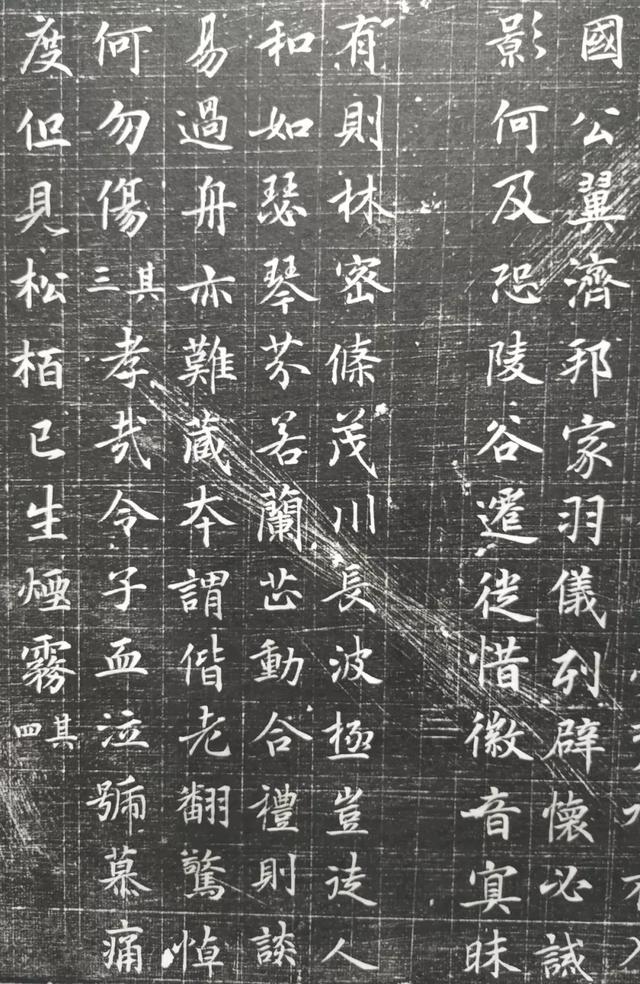 國公翼濟邦家羽儀列辟懷必誠
影何及恐陵谷遷徙惜徽音㝠昧
有則林密條茂川長波極豈徒人
和如瑟琴芬若蘭芷動合禮則談
易過舟亦難藏本謂偕老翻驚悼
何勿傷其三孝哉令子血泣號慕痛
度但見松栢已生煙霧其四